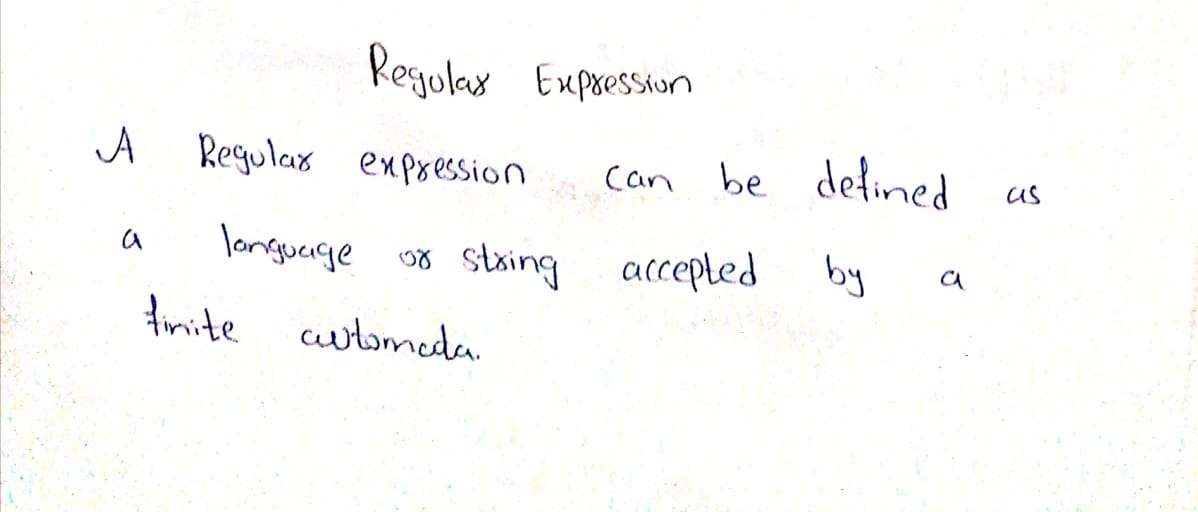 Regular Expression
A Regular expression can be defined as
a language or string accepted by a
finite automata.